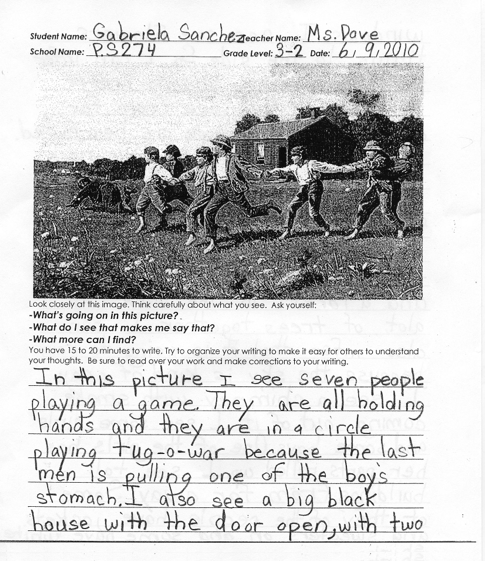 Student Name: Gabriela Sanchez Teacher Name: Ms. Dove
School Name: P.S 274 Grade Level: 3-2 Date: 6, 9, 2010
Look closely at this image. Think carefully about what you see. Ask yourself:
-What's going on in this picture?
-What do I see that makes me say that?
-What more can I find?
You have 15 to 20 minutes to write. Try to organize your writing to make it easy for others to understand
your thoughts. Be sure to read over your work and make corrections to your writing.
In this picture I see seven people
playing a game. They are all holding
hands and they are in a circle
playing tug-o-war because the last
men is pulling one of the boy's
stomach. I also see a big black
house with the door open, with two